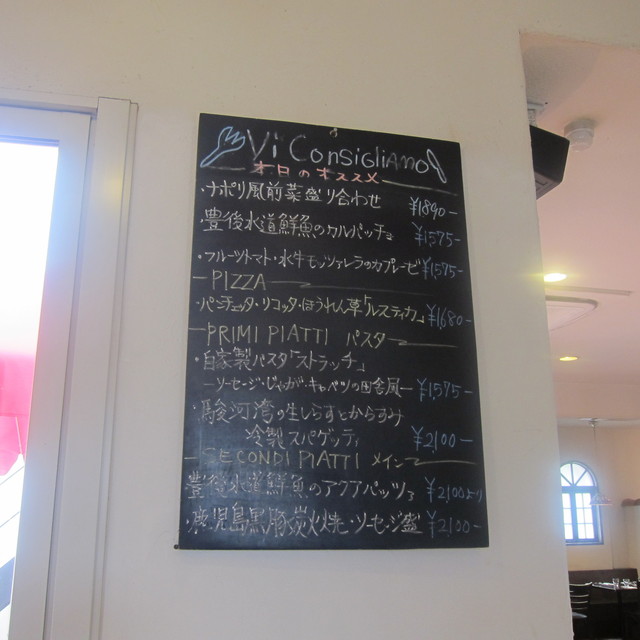 Vi Consigliamo
本日のオススメ
・ナポリ風前菜盛り合わせ ¥1890-
豊後水道鮮魚のカルパッチョ ¥1575-
・フルーツトマト・水牛モッツァレラのカプレーゼ ¥1575-
PIZZA
・パンチェッタ・リコッタ・ほうれん草「ルスティカ」 ¥1680-
PRIMI PIATTI パスタ
・自家製パスタ「ストラッチ」
ーソーセージ・じゃが・キャベツの田舎風ー ¥1575-
・駿河湾の生しらすとからすみ
冷製スパゲッティ ¥2100-
SECONDI PIATTI メイン
豊後水道鮮魚のアクアパッツァ ¥2100より
・鹿児島黒豚炭火焼・ソーセージ盛 ¥2100-